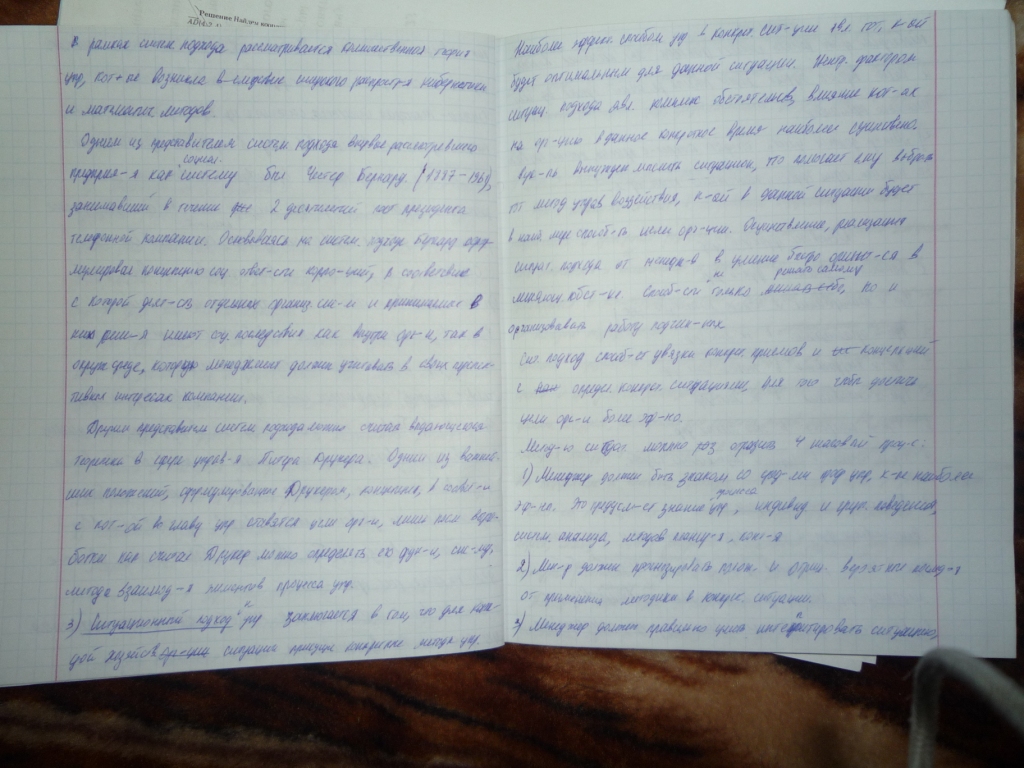 Решение Найдем
в рамках систем подхода рассматривается количественная теория
упр, кот-я возникла в следствие широкого распрост-я кибернетики
и матем-их методов.
Одним из представителем систем подхода впервые рассмотревшего
предприя-я как социал. систему был Честер Бернард (1887-1961),
занимавший в течении 2 десятилетий пост президента
телефонной компании. Основываясь на систем. подходе Бернард сфор-
мулировал концепцию соц ответ-сти корпо-ций, в соответствие
с которой деят-сть отдельных организ сис-м и принимаемые в
них реш-я имеют соц последствия как внутри орг-и, так в
окруж среде, которую менеджмент должен учитывать в своих перспек-
тивных интересах компании.
Другим представителем систем подхода можно считать выдающегося
теоретика в сфере управ-я Питера Друкера. Одним из важней-
ших положений, сформулированных Друкером, концепция, в соответ-и
с кот-ой во главу упр ставятся цели орг-и, лишь после выра-
ботки как считал Друкер можно определять его фун-и, сис-му,
метода взаимод-я элементов процесса упр.
3) Ситуационный подход к упр заключается в том, что для каж-
дой ситуации присущи конкретные методы упр.
Наиболее эффект. способом упр в конкрет. сит-ции явл. тот, к-ой
будет оптимальным для данной ситуации. фактором
ситуац. подхода явл. комплекс обстоятельств, влияние кот-ых
на орг-цию в данное конкретное время наиболее существенно.
вынужден мыслить ситуацион, что помогает ему выбрать
тот метод управ воздействия, к-ой в данной ситуации будет
в наиб мере способ-ть цели орг-ции. Осуществление, реализация
ситуат. подхода от менедж-а в умении быстро ориент-ся в
меняющ. обст-ке. Способ-сти не только решать самому, но и
организовывая работу подчин-ных.
Сит. подход способ-ет увязки конкрет. приемов и концепций
с определ. конкрет. ситуациями, для того чтобы достичь
цели орг-и более эф-но.
Метод-ю ситуат можно раз образить 4 шаговый проц-с:
1) Менеджер должен быть знаком со сред-ми проф упр, к-ые наиболее
эф-но. Это предусм-ет знание процесса упр, индивид и груп. поведения,
систем. анализа, методов планир-я, конт-я.
2) Мен-р должен прогнозировать полож. и отриц. вероятные послед-я
от применения методики в конкрет. ситуации.
3) Менеджер должен правильно уметь интерпретировать ситуацию,